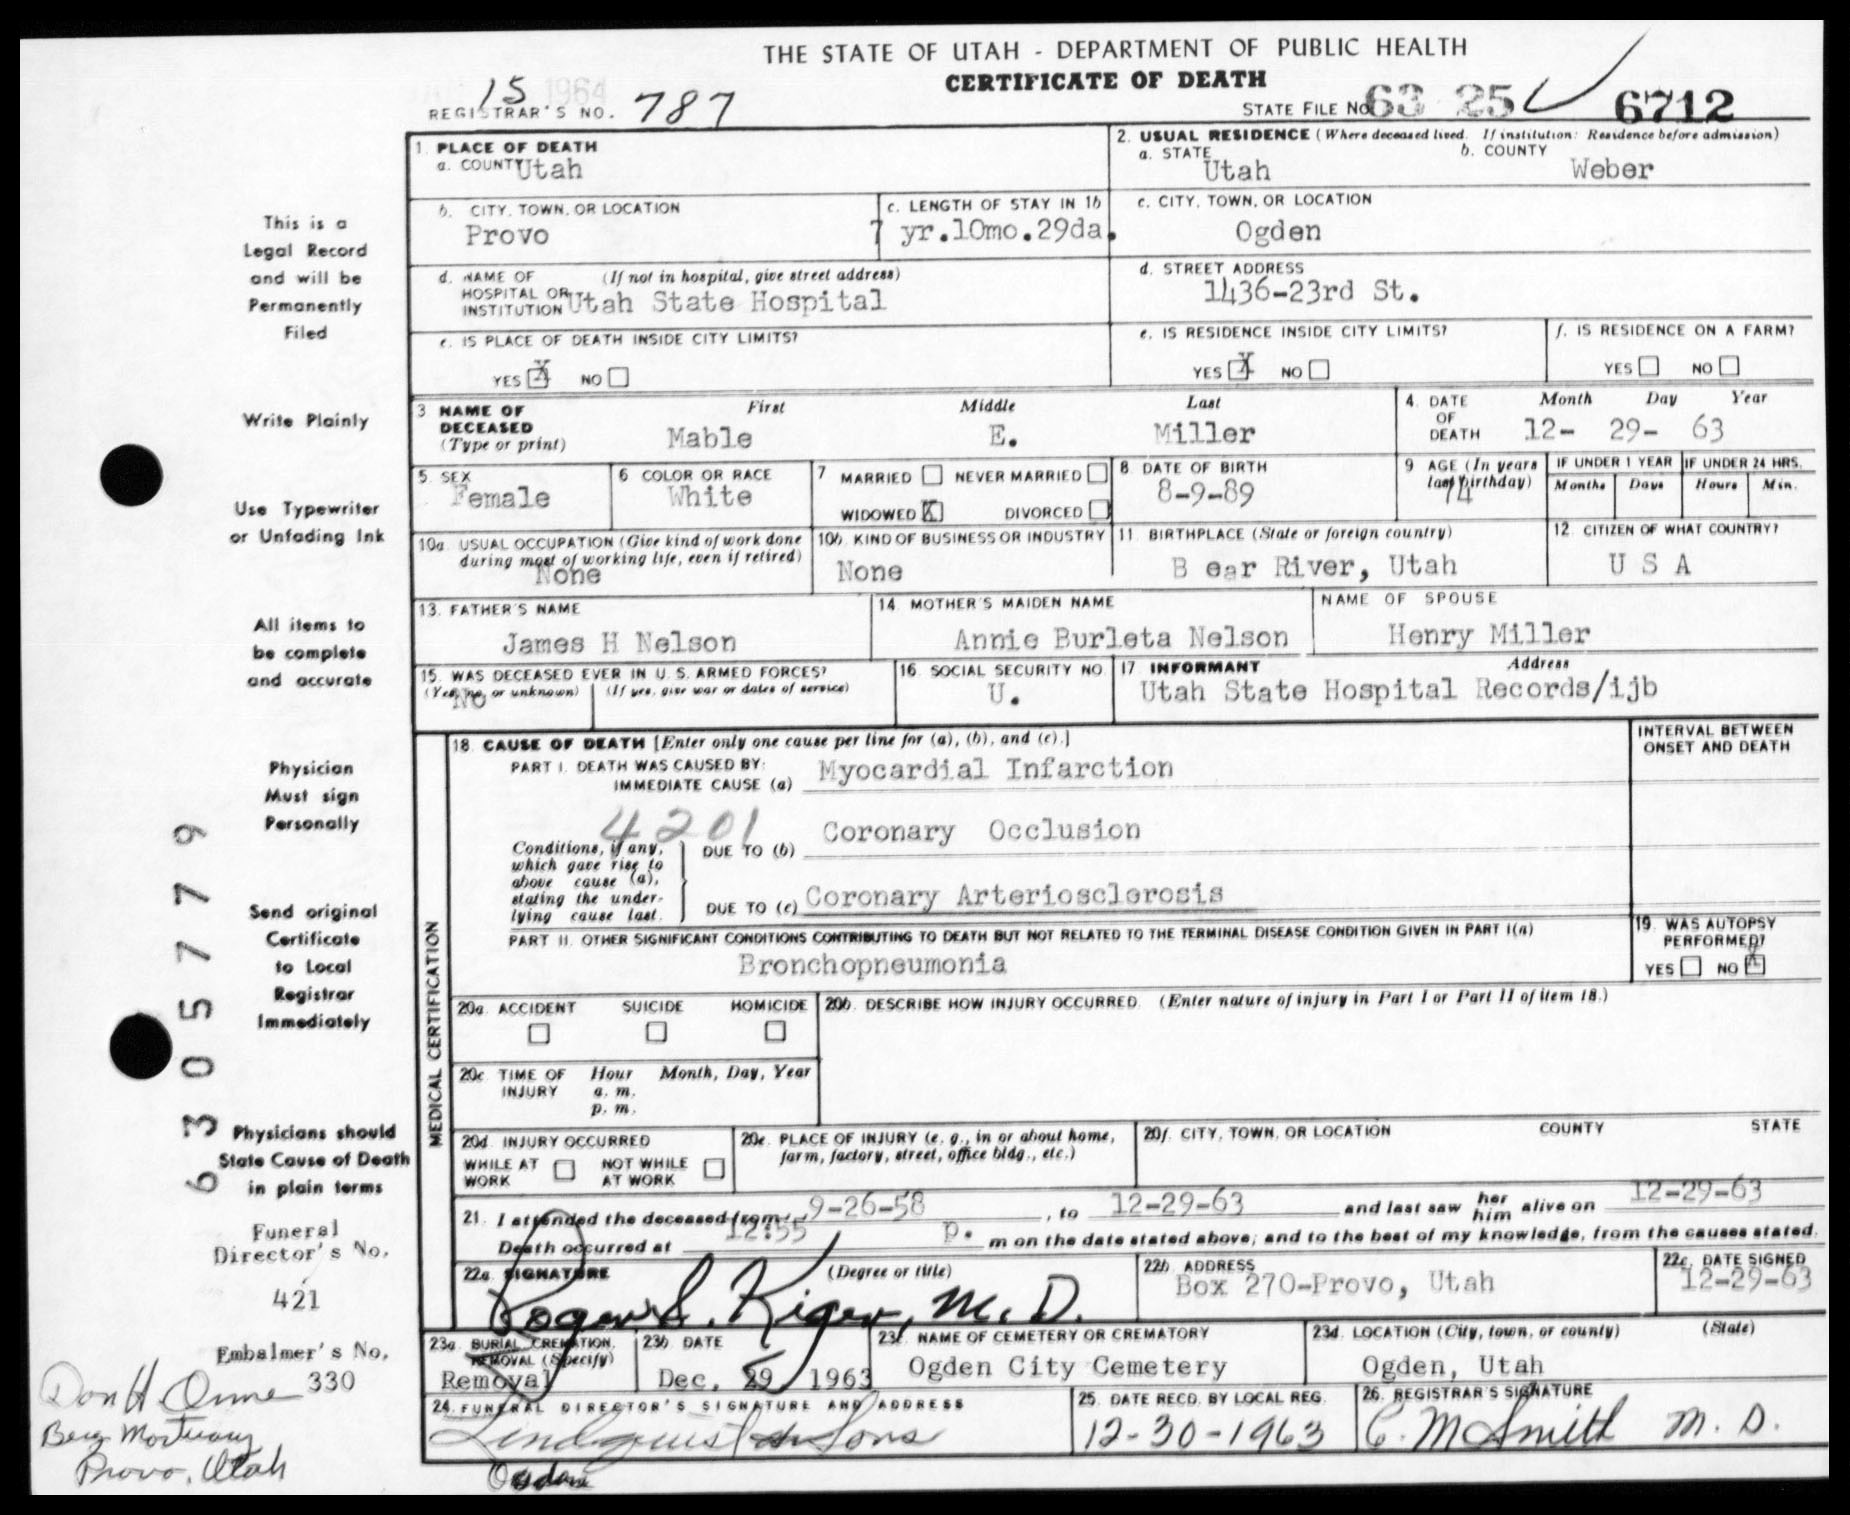 THE STATE OF UTAH - DEPARTMENT OF PUBLIC HEALTH
CERTIFICATE OF DEATH
15 1964
REGISTRAR'S NO. 787
STATE FILE NO. 63 25 6712
1. PLACE OF DEATH
a. COUNTY Utah
2. USUAL RESIDENCE (Where deceased lived. If institution: Residence before admission)
a. STATE Utah b. COUNTY Weber
b. CITY, TOWN, OR LOCATION Provo
c. LENGTH OF STAY IN 1b 7 yr.10mo.29da.
c. CITY, TOWN, OR LOCATION Ogden
d. NAME OF HOSPITAL OR INSTITUTION (If not in hospital, give street address) Utah State Hospital
d. STREET ADDRESS 1436-23rd St.
e. IS PLACE OF DEATH INSIDE CITY LIMITS?
YES X NO
e. IS RESIDENCE INSIDE CITY LIMITS?
YES X NO
f. IS RESIDENCE ON A FARM?
YES NO
3 NAME OF DECEASED (Type or print)
First Middle Last
Mable E. Miller
4. DATE OF DEATH Month Day Year
12- 29- 63
5. SEX Female
6 COLOR OR RACE White
7 MARRIED NEVER MARRIED
WIDOWED X DIVORCED
8 DATE OF BIRTH 8-9-89
9 AGE (In years last birthday) 74
IF UNDER 1 YEAR Months Days
IF UNDER 24 HRS. Hours Min.
10a. USUAL OCCUPATION (Give kind of work done during most of working life, even if retired) None
10b. KIND OF BUSINESS OR INDUSTRY None
11 BIRTHPLACE (State or foreign country) B ear River, Utah
12 CITIZEN OF WHAT COUNTRY? U S A
13. FATHER'S NAME James H Nelson
14 MOTHER'S MAIDEN NAME Annie Burleta Nelson
NAME OF SPOUSE Henry Miller
15. WAS DECEASED EVER IN U. S. ARMED FORCES?
(Yes, no, or unknown) No (If yes, give war or dates of service)
16. SOCIAL SECURITY NO U.
17. INFORMANT Address
Utah State Hospital Records/ijb
MEDICAL CERTIFICATION
18. CAUSE OF DEATH [Enter only one cause per line for (a), (b), and (c).]
INTERVAL BETWEEN ONSET AND DEATH
PART I. DEATH WAS CAUSED BY:
IMMEDIATE CAUSE (a) Myocardial Infarction
4201
Conditions, if any, which gave rise to above cause (a), stating the underlying cause last.
DUE TO (b) Coronary Occlusion
DUE TO (c) Coronary Arteriosclerosis
PART II. OTHER SIGNIFICANT CONDITIONS CONTRIBUTING TO DEATH BUT NOT RELATED TO THE TERMINAL DISEASE CONDITION GIVEN IN PART I(a)
Bronchopneumonia
19. WAS AUTOPSY PERFORMED?
YES NO X
20a. ACCIDENT SUICIDE HOMICIDE
20b. DESCRIBE HOW INJURY OCCURRED. (Enter nature of injury in Part I or Part II of item 18.)
20c. TIME OF INJURY Hour a. m. p. m. Month, Day, Year
20d. INJURY OCCURRED
WHILE AT WORK NOT WHILE AT WORK
20e. PLACE OF INJURY (e. g., in or about home, farm, factory, street, office bldg., etc.)
20f. CITY, TOWN, OR LOCATION COUNTY STATE
21. I attended the deceased from 9-26-58, to 12-29-63 and last saw her him alive on 12-29-63
Death occurred at 12:55 p. m on the date stated above; and to the best of my knowledge, from the causes stated.
22a. SIGNATURE (Degree or title)
Roger S. Kiger, M.D.
22b. ADDRESS Box 270-Provo, Utah
22c. DATE SIGNED 12-29-63
23a. BURIAL, CREMATION, REMOVAL (Specify) Removal
23b. DATE Dec. 29 1963
23c. NAME OF CEMETERY OR CREMATORY Ogden City Cemetery
23d. LOCATION (City, town, or county) (State) Ogden, Utah
24. FUNERAL DIRECTOR'S SIGNATURE AND ADDRESS
Lindquist & Sons
Ogden
25. DATE RECD. BY LOCAL REG. 12-30-1963
26. REGISTRAR'S SIGNATURE C. M Smith M. D.
This is a
Legal Record
and will be
Permanently
Filed
Write Plainly
Use Typewriter
or Unfading Ink
All items to
be complete
and accurate
Physician
Must sign
Personally
Send original
Certificate
to Local
Registrar
Immediately
Physicians should
State Cause of Death
in plain terms
6305779
Funeral
Director's No.
421
Embalmer's No.
330
Don H. Orme
Berg Mortuary
Provo, Utah